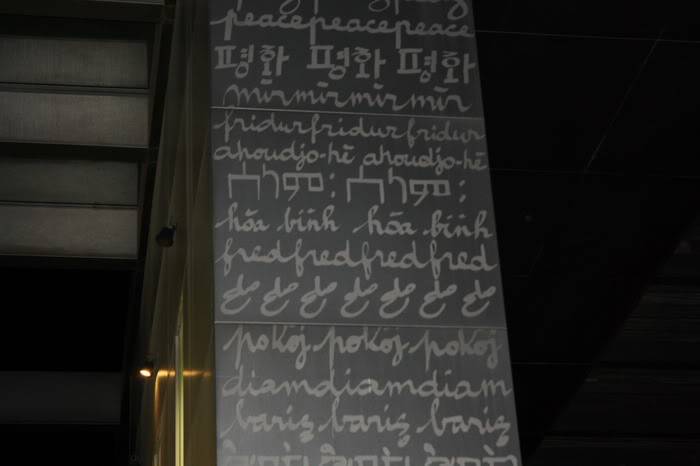 peacepeacepeace
평화 평화 평화
mīrmīrmīrmīr
fridurfridurfridur
ahoudjo-hē ahoudjo-hē
hòa bình hòa bình
fredfredfredfred
صلح صلح صلح صلح صلح صلح صلح
pokój pokój pokój
diamdiamdiam
bariş bariş bariş